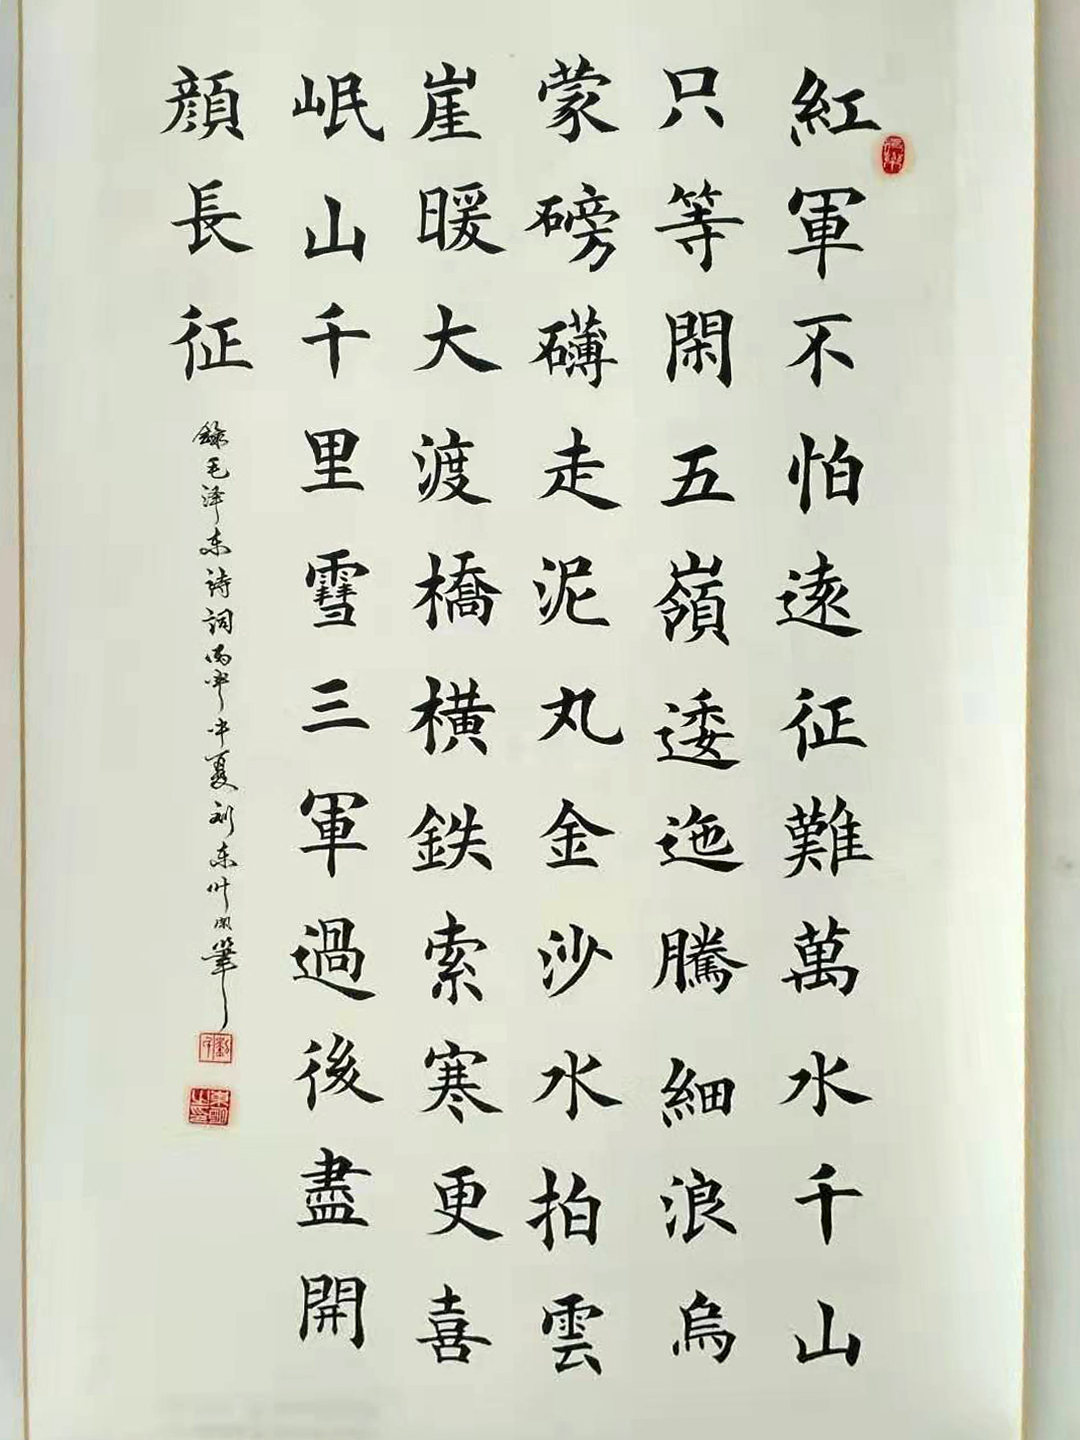 紅軍不怕遠征難萬水千山
只等閑五嶺逶迤騰細浪烏
蒙磅礴走泥丸金沙水拍雲
崖暖大渡橋橫鉄索寒更喜
岷山千里雪三軍過後盡開
顔長征
錄毛泽东诗詞丙申中夏刘东